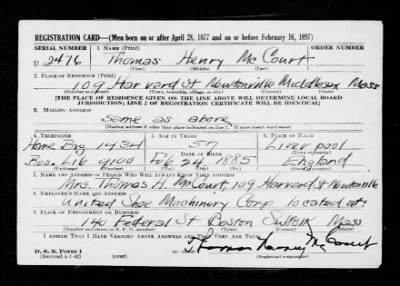 REGISTRATION CARD—(Men born on or after April 28, 1877 and on or before February 16, 1897)
SERIAL NUMBER 1. NAME (Print) ORDER NUMBER
U 2476 Thomas Henry McCourt
(First) (Middle) (Last)
2. PLACE OF RESIDENCE (Print)
109 Harvard St Newtonville Middlesex Mass
(Number and street) (Town, township, village, or city) (County) (State)
[THE PLACE OF RESIDENCE GIVEN ON THE LINE ABOVE WILL DETERMINE LOCAL BOARD
JURISDICTION; LINE 2 OF REGISTRATION CERTIFICATE WILL BE IDENTICAL]
3. MAILING ADDRESS
Same as above
[Mailing address if other than place indicated on line 2. If same insert word same]
4. TELEPHONE 5. AGE IN YEARS 6. PLACE OF BIRTH
Home Big 1434 57 Liverpool
DATE OF BIRTH (Town or county)
Bos. Lib 9100 Feb 24 1885 England
(Exchange) (Number) (Mo.) (Day) (Yr.) (State or country)
7. NAME AND ADDRESS OF PERSON WHO WILL ALWAYS KNOW YOUR ADDRESS
Mrs. Thomas H. McCourt 109 Harvard St Newtonville
8. EMPLOYER'S NAME AND ADDRESS
United Shoe Machinery Corp located at:
9. PLACE OF EMPLOYMENT OR BUSINESS
140 Federal St Boston Suffolk Mass
(Number and street or R. F. D. number) (Town) (County) (State)
I AFFIRM THAT I HAVE VERIFIED ABOVE ANSWERS AND THAT THEY ARE TRUE.
D. S. S. Form 1
(Revised 4-1-42) Thomas Henry McCourt